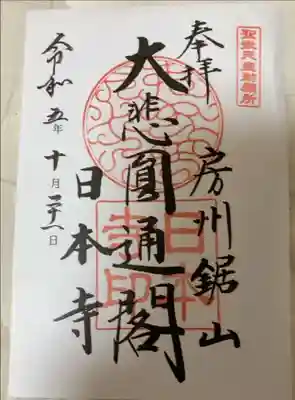 聖武天皇勅願所
奉拝
房州鋸山
大悲圓通閣
日本寺印
日本寺
令和五年十月二十一日